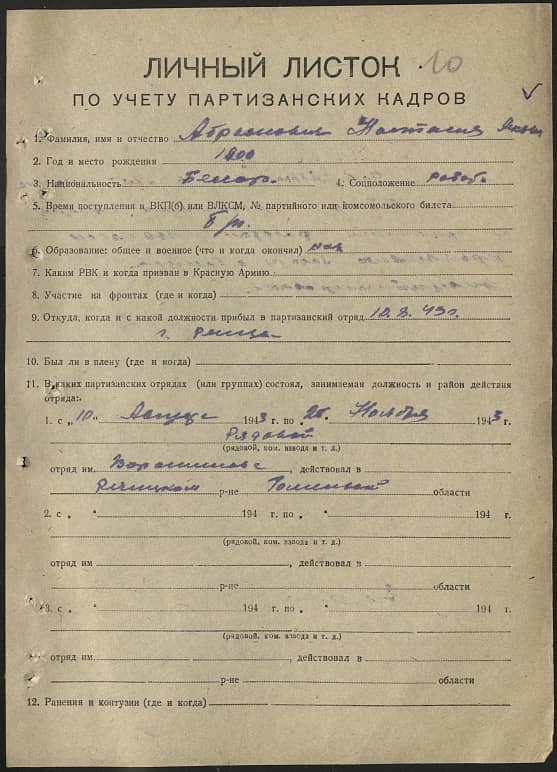 10
ЛИЧНЫЙ ЛИСТОК
ПО УЧЕТУ ПАРТИЗАНСКИХ КАДРОВ
1. Фамилия, имя и отчество Абрамович Настасия
2. Год и место рождения 1900
3. Национальность Белор. 4. Соцположение рабоч.
5. Время поступления в ВКП(б) или ВЛКСМ, № партийного или комсомольского билета
б/п.
6. Образование: общее и военное (что и когда окончил) нач
7. Каким РВК и когда призван в Красную Армию
8. Участие на фронтах (где и когда)
9. Откуда, когда и с какой должности прибыл в партизанский отряд 10.8.43г.
г. Речица
10. Был ли в плену (где и когда)
11. В каких партизанских отрядах (или группах) состоял, занимаемая должность и район действия
отряда:
1. с „10" Августа 1943 г. по „25" Ноября 1943 г.
Рядовой
(рядовой, ком. взвода и т. д.)
отряд им. Ворошилова, действовал в
Речицком р-не Гомельской области
2. с „ " 194 г. по „ " 194 г.
(рядовой, ком. взвода и т. д.)
отряд им , действовал в
р-не области
3. с „ " 194 г. по „ " 194 г.
(рядовой, ком. взвода и т. д.)
отряд им. , действовал в
р-не области
12. Ранения и контузии (где и когда)